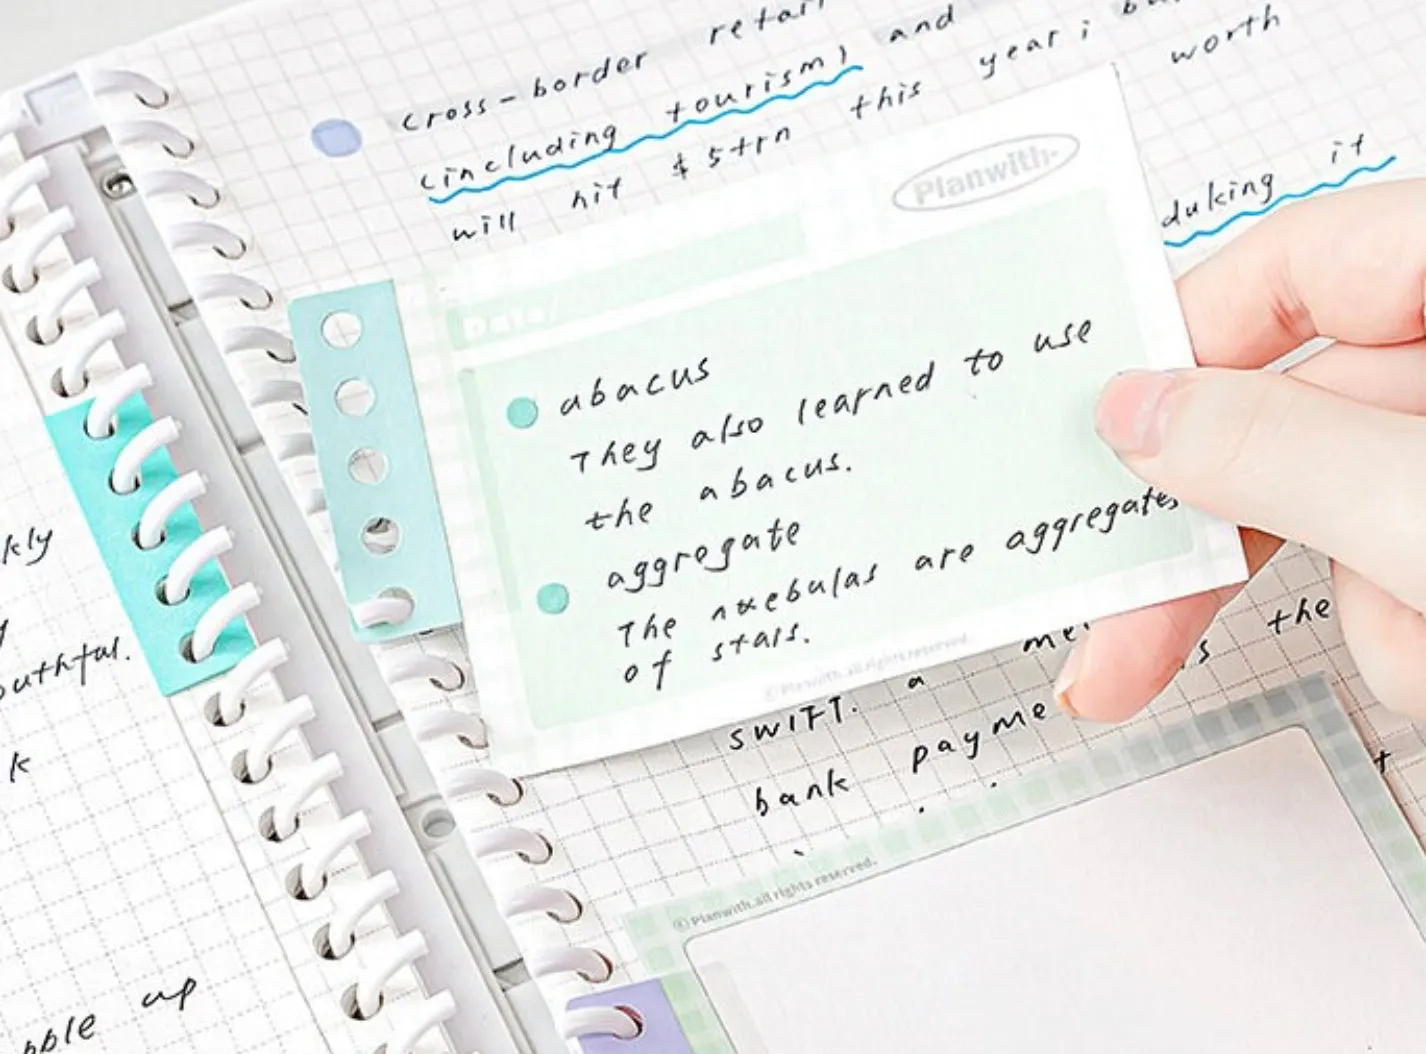 cross-border retail
(including tourism) and
will hit $5trn this year; bu
worth
duking it
Planwith.
Date/
abacus
They also learned to use
the abacus.
aggregate
The nuebulas are aggregates
of stals.
© Planwith.all rights reserved.
the
SWIFT. a
bank payme
© Planwith.all rights reserved.
kly
outhful.
k
bble up